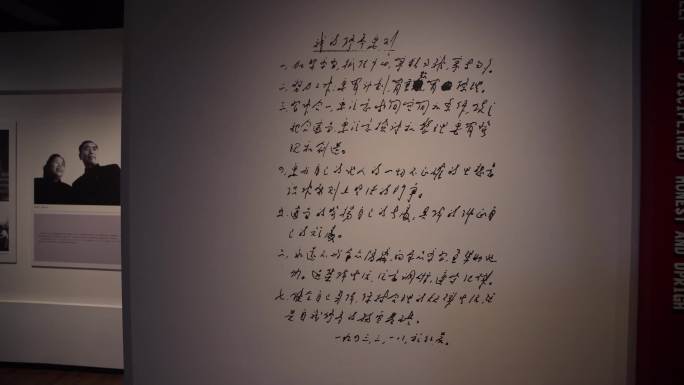 我的修养要则
一、加紧学习,抓住中心,宁精勿杂,宁专勿多。
二、努力工作,要有计划,有重点,有条理。
三、习作合一,要注意时间空间和条件,使之
配合适当,要注意检讨和整理,要有发
现和创造。
四、要与自己的他人的一切不正确的思想意
识作原则上坚决的斗争。
五、适当的发扬自己的长处,具体的纠正自
己的短处。
六、永远不与群众隔离,向群众学习,并帮助他
们。过集体生活,注意调研,遵守纪律。
七、健全自己身体,保持合理的规律生活,这
是自我修养的物质基础。
一九四三、三、一八,于红岩。
SELF DISCIPLINED HONEST AND UPRIGH